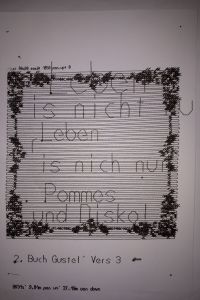 Leben
is nicht
Leben
is nich nur
Pommes
und Disko!
2. Buch Gustel' Vers 3